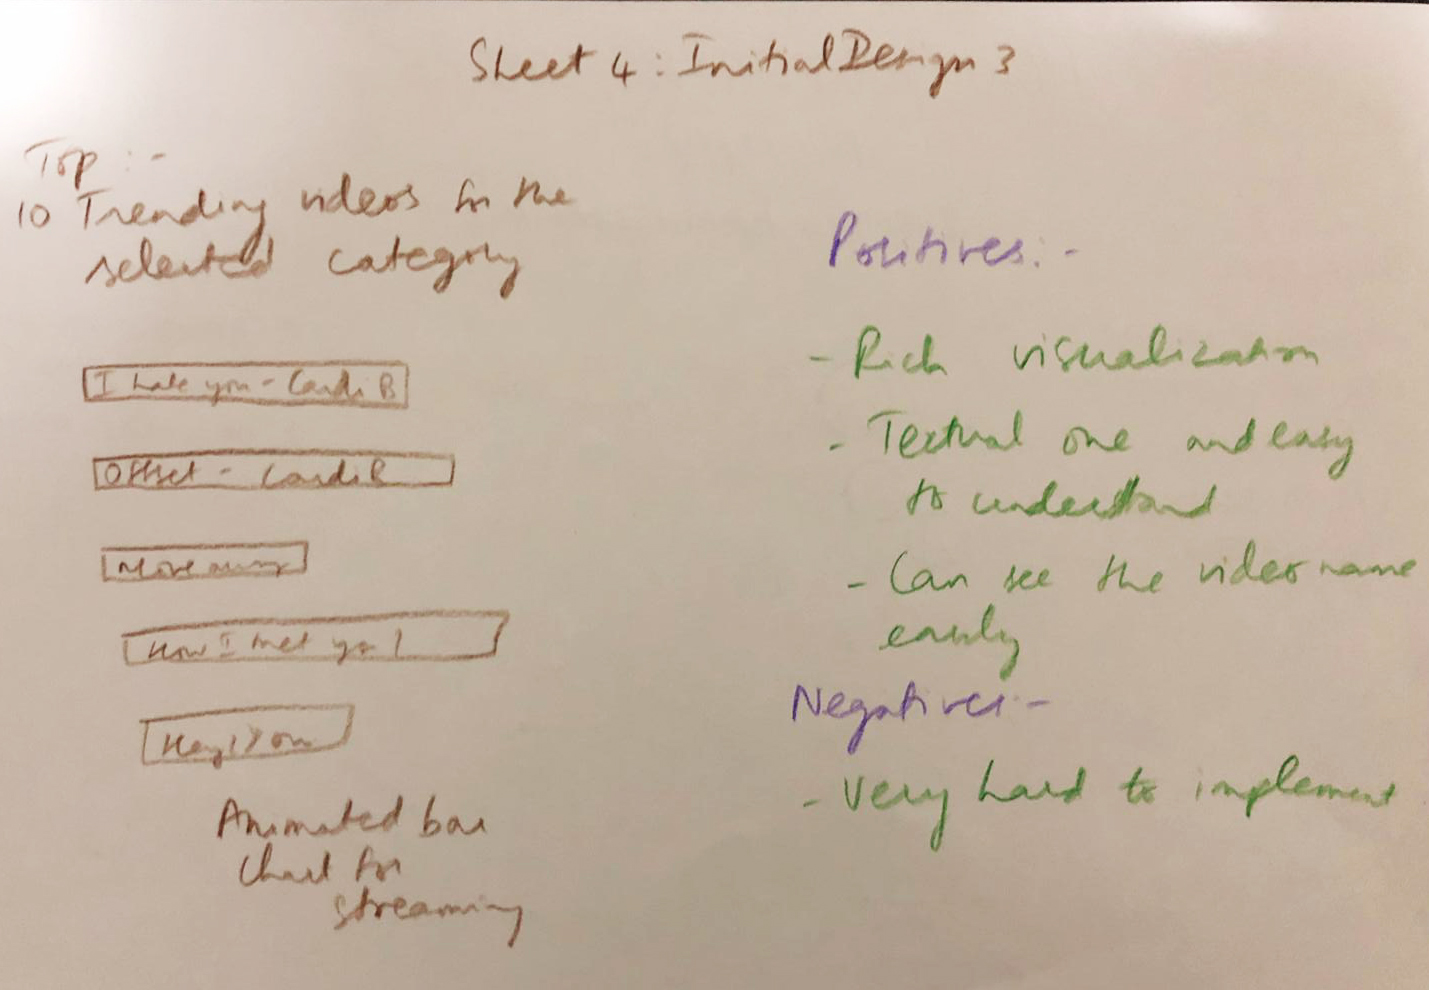 Sheet 4 : Initial Design 3
Top :-
10 Trending videos for the
selected category
I hate you - Cardi B
Offset - Cardi B
Move away
How I met you!
Hey!
Animated bar
chart for
streaming
Positives:-
- Rich visualization
- Textual one and easy
to understand
- Can see the video name
easily
Negatives:-
- Very hard to implement